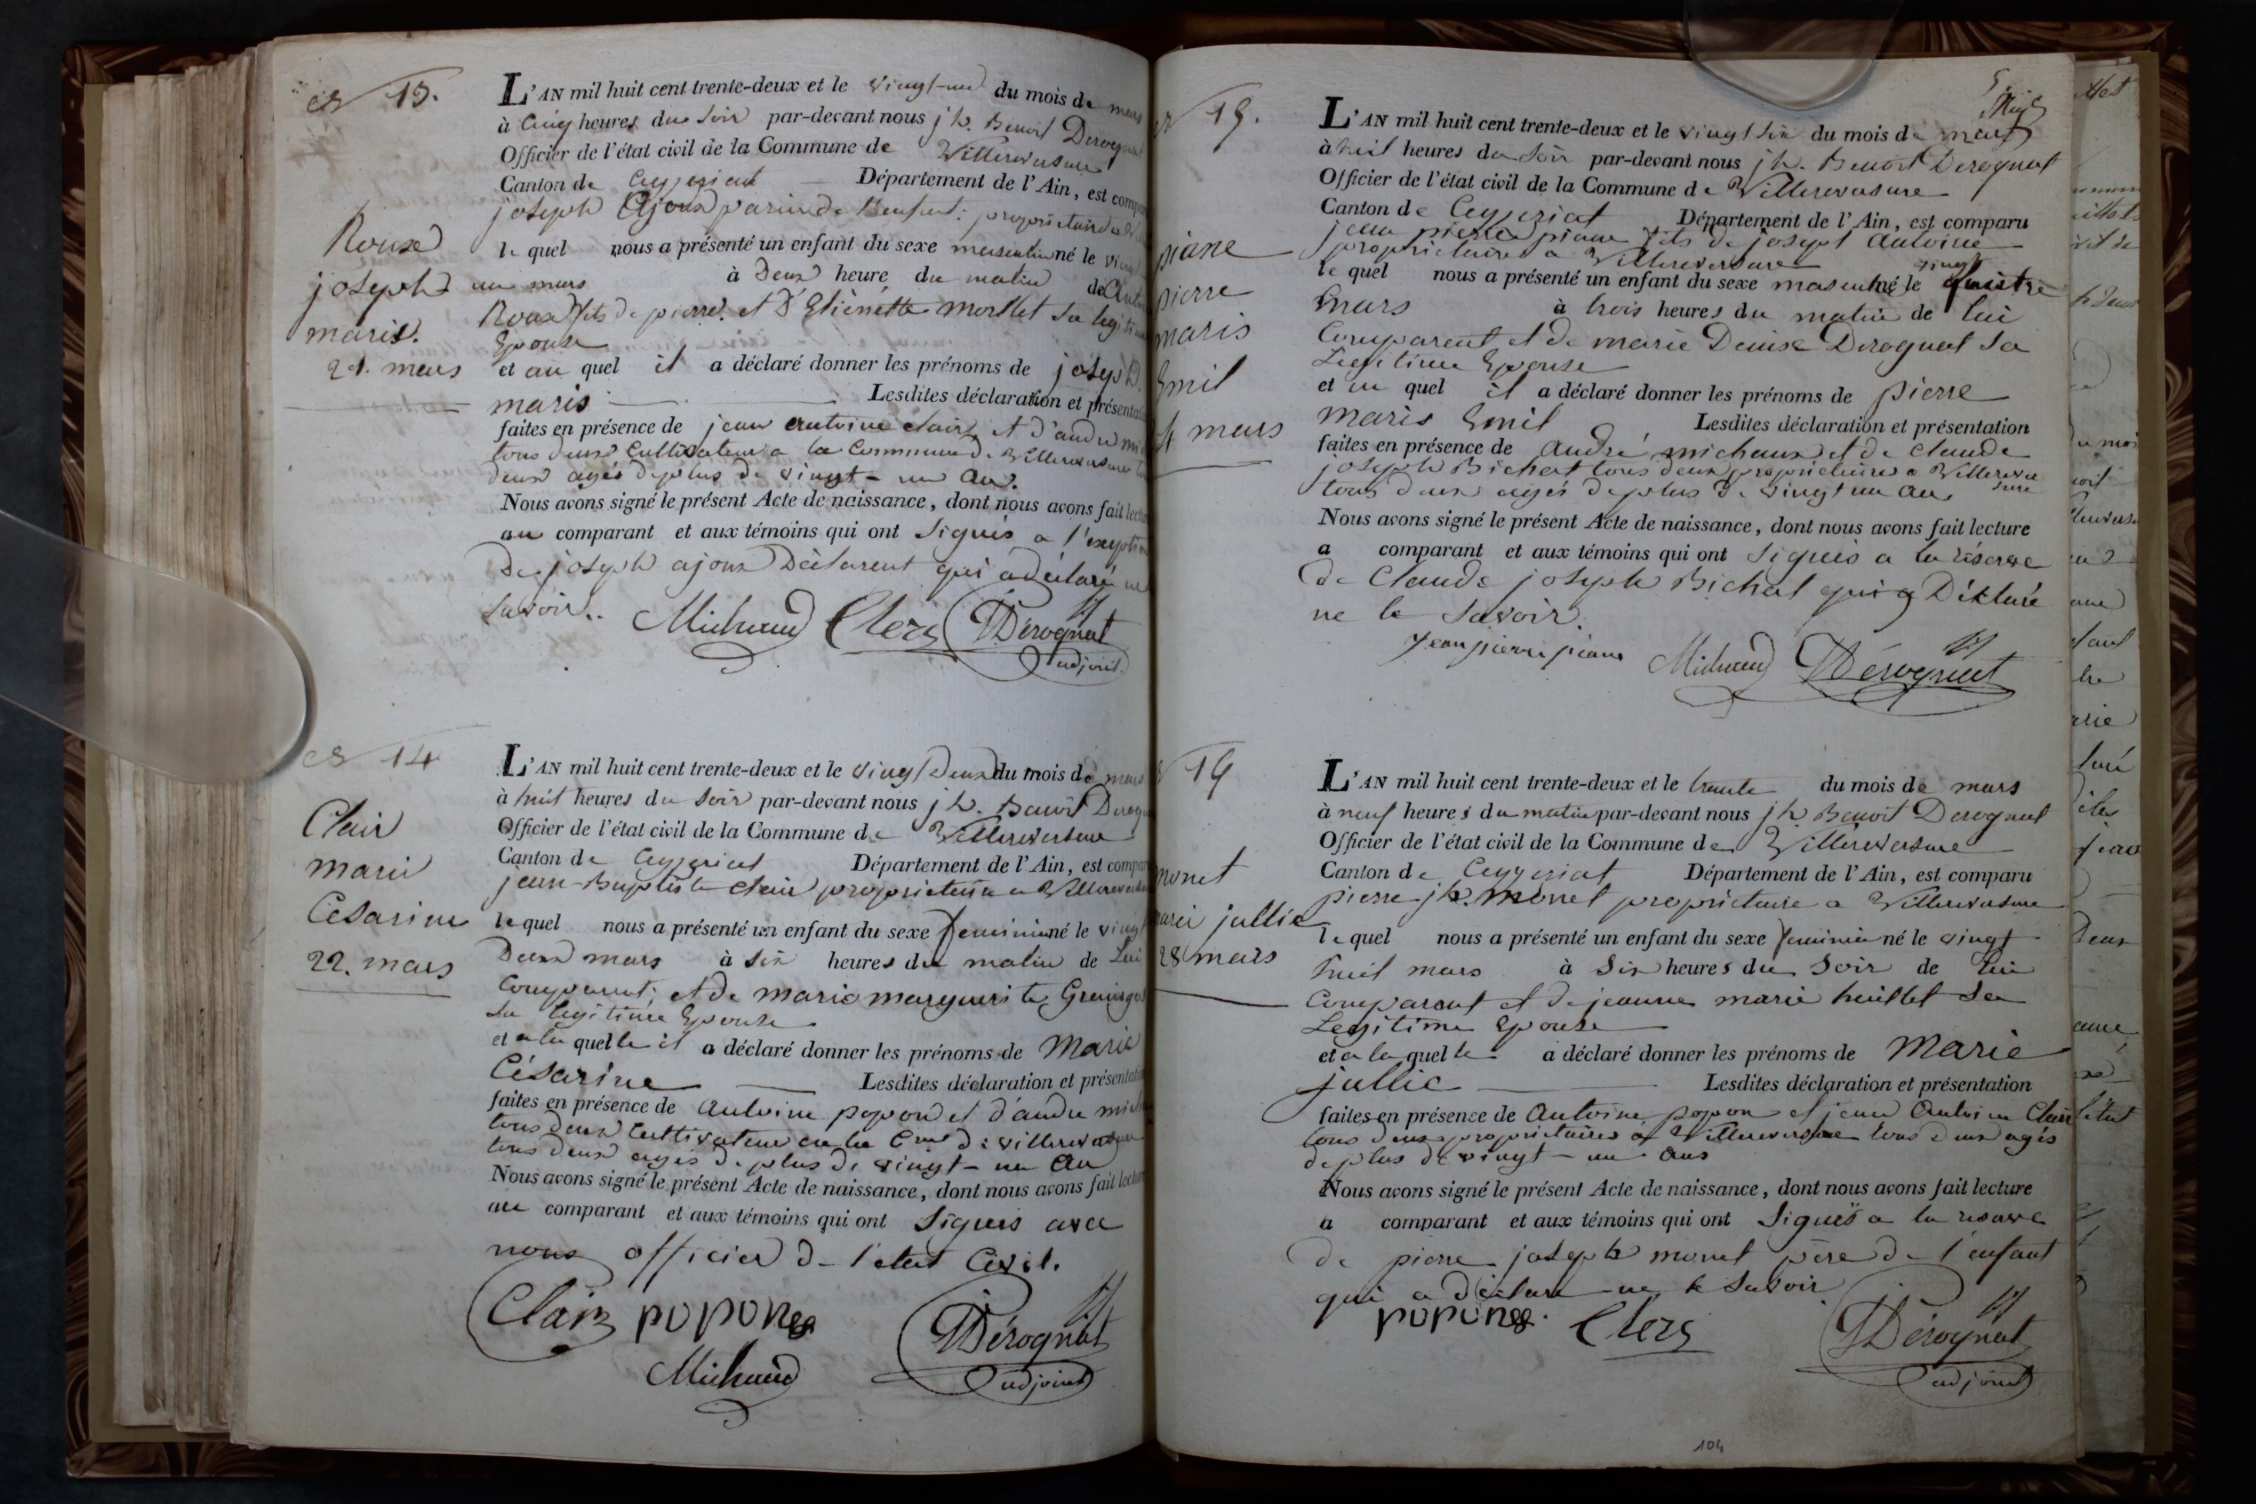 N 13.
Roux
joseph
marie.
21. mars
L'AN mil huit cent trente-deux et le vingt-un du mois de mars
à cinq heures du soir par-devant nous jh. Benoit Derognat
Officier de l'état civil de la Commune de Villereversure
Canton de Ceyzeriat Département de l'Ain, est compa
joseph Ajoux parain de l'enfant: proprietaire
le quel nous a présenté un enfant du sexe masculin né le vingt
un mars à Deux heure du matin de
Roux fils de pierre et D'Etienette Morllet sa legitime
Epouse
et au quel il a déclaré donner les prénoms de joseph
marie Lesdites déclaration et présentation
faites en présence de jean antoine clair et d'andre
tous deux Cultivateur a la Commune de Villereversure
deux agés de plus de vingt-un an.
Nous avons signé le présent Acte de naissance, dont nous avons fait lecture
au comparant et aux témoins qui ont signés a l'exeption
De joseph ajoux Déclarent qui a déclaré ne
savoir..
Michaud Clerc JDérognat
adjoint
N 14
Clair
marie
Césarine
22. mars
L'AN mil huit cent trente-deux et le vingt deux du mois de mars
à huit heures du soir par-devant nous jh. Benoit Derognat
Officier de l'état civil de la Commune de Villereversure
Canton de Ceyzeriat Département de l'Ain, est compar
jean-Baptiste clair proprietaire a Villereversure
le quel nous a présenté un enfant du sexe feminin né le vingt
Deux mars à six heures du matin de Lui
Comparant: et de marie marguerite
sa legitime Epouse
et a la quelle il a déclaré donner les prénoms de Marie
Césarine Lesdites déclaration et présentation
faites en présence de antoine popon et d'andre
tous deux Cultivateur en la Cme de villereversure
tous deux agés de plus de vingt-un an
Nous avons signé le présent Acte de naissance, dont nous avons fait lecture
au comparant et aux témoins qui ont signés avec
nous officier de l'etat Civil.
Clair popon JDérognat
Michaud adjoint
15.
piane
pierre
marie
Emil
mars
L'AN mil huit cent trente-deux et le vingt six du mois de mars
à huit heures du soir par-devant nous jh. Benoit Derognat
Officier de l'état civil de la Commune de Villereversure
Canton de Ceyzeriat Département de l'Ain, est comparu
jean pierre piane fils de joseph antoine
proprietaire a Villereversure
le quel nous a présenté un enfant du sexe masculin né le vingt
mars à trois heures du matin de lui
Comparent et de marie Denise Derognat sa
Legitime Epouse
et au quel il a déclaré donner les prénoms de pierre
marie Emil Lesdites déclaration et présentation
faites en présence de andré michaud et de claude
joseph Bichat tous deux proprietaires a Villereversure
tous deux agés de plus de vingt un an
Nous avons signé le présent Acte de naissance, dont nous avons fait lecture
a comparant et aux témoins qui ont signés a la réserve
de Claude joseph Bichat qui a Déclaré
ne le savoir.
Jean pierre piane Michaud JDérognat
monet
marie jullie
28 mars
L'AN mil huit cent trente-deux et le trente du mois de mars
à neuf heures du matin par-devant nous jh. Benoit Derognat
Officier de l'état civil de la Commune de Villereversure
Canton de Ceyzeriat Département de l'Ain, est comparu
pierre jh. monet proprietaire a Villereversure
le quel nous a présenté un enfant du sexe feminin né le vingt
huit mars à six heures du soir de lui
Comparant et de jeanne marie huillet sa
Legitime Epouse
et a la quelle a déclaré donner les prénoms de Marie
jullie Lesdites déclaration et présentation
faites en présence de antoine popon et jean antoine Clair
tous deux proprietaires a Villereversure tous deux agés
de plus de vingt-un ans
Nous avons signé le présent Acte de naissance, dont nous avons fait lecture
a comparant et aux témoins qui ont signés a la reserve
de pierre joseph monet père de l'enfant
qui a déclare ne le savoir
popon Clerc JDérognat
adjoint
104